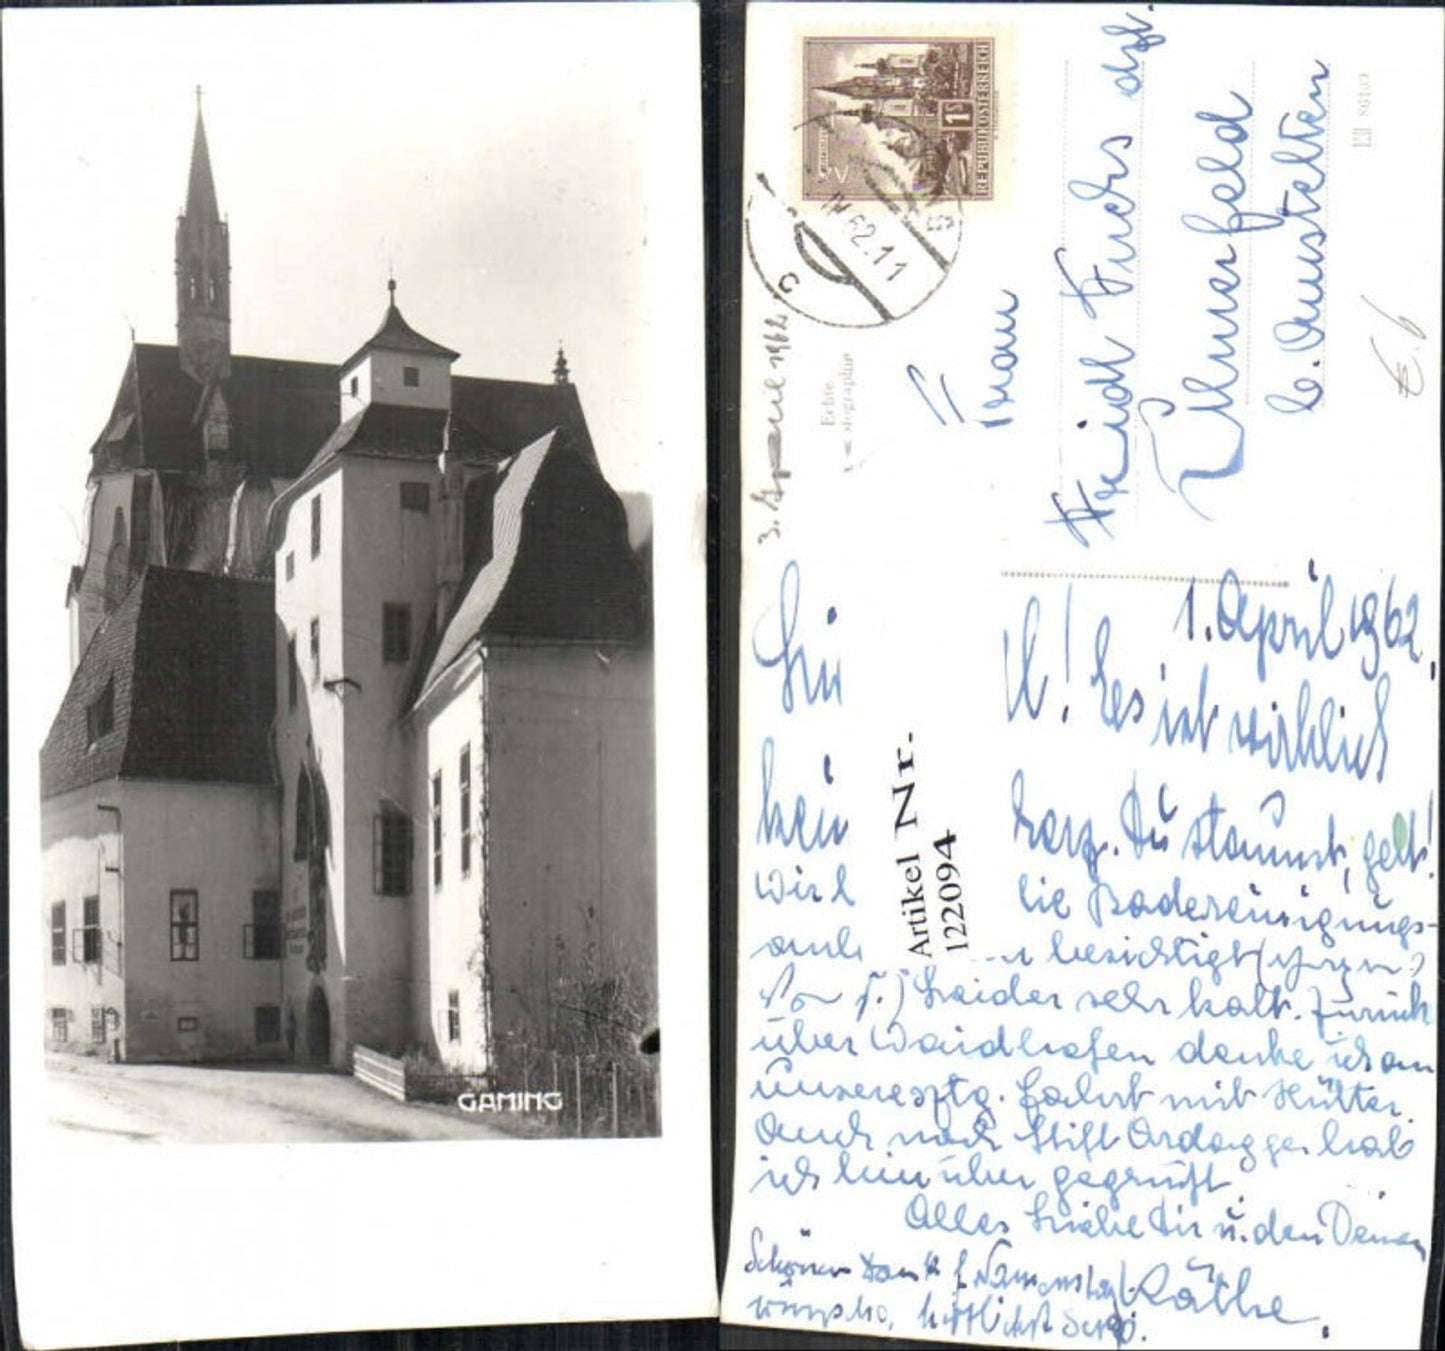 GAMING
1 S
REPUBLIK ÖSTERREICH
IV 62.11
C
3. April 1962
Echte
Photographie
Frau
Heidi Fuchs
Ulmerfeld
b. Amstetten
E. b
1. April 1962.
! Es ist wirklich
kein
. Du staunst, gelt!
die Badereinigungs-
besichtigt
Leider sehr kalt. Zurück
über Waidhofen denke ich an
unsere Fahrt mit Hütter.
Auch nach Stift Ardagger hab
ich hinüber gegrüßt.
Alles Liebe Dir u. den Deinen
Käthe.
Schönen Dank f. Namenstag-
wünsche, herzlichst
Artikel Nr.
122094